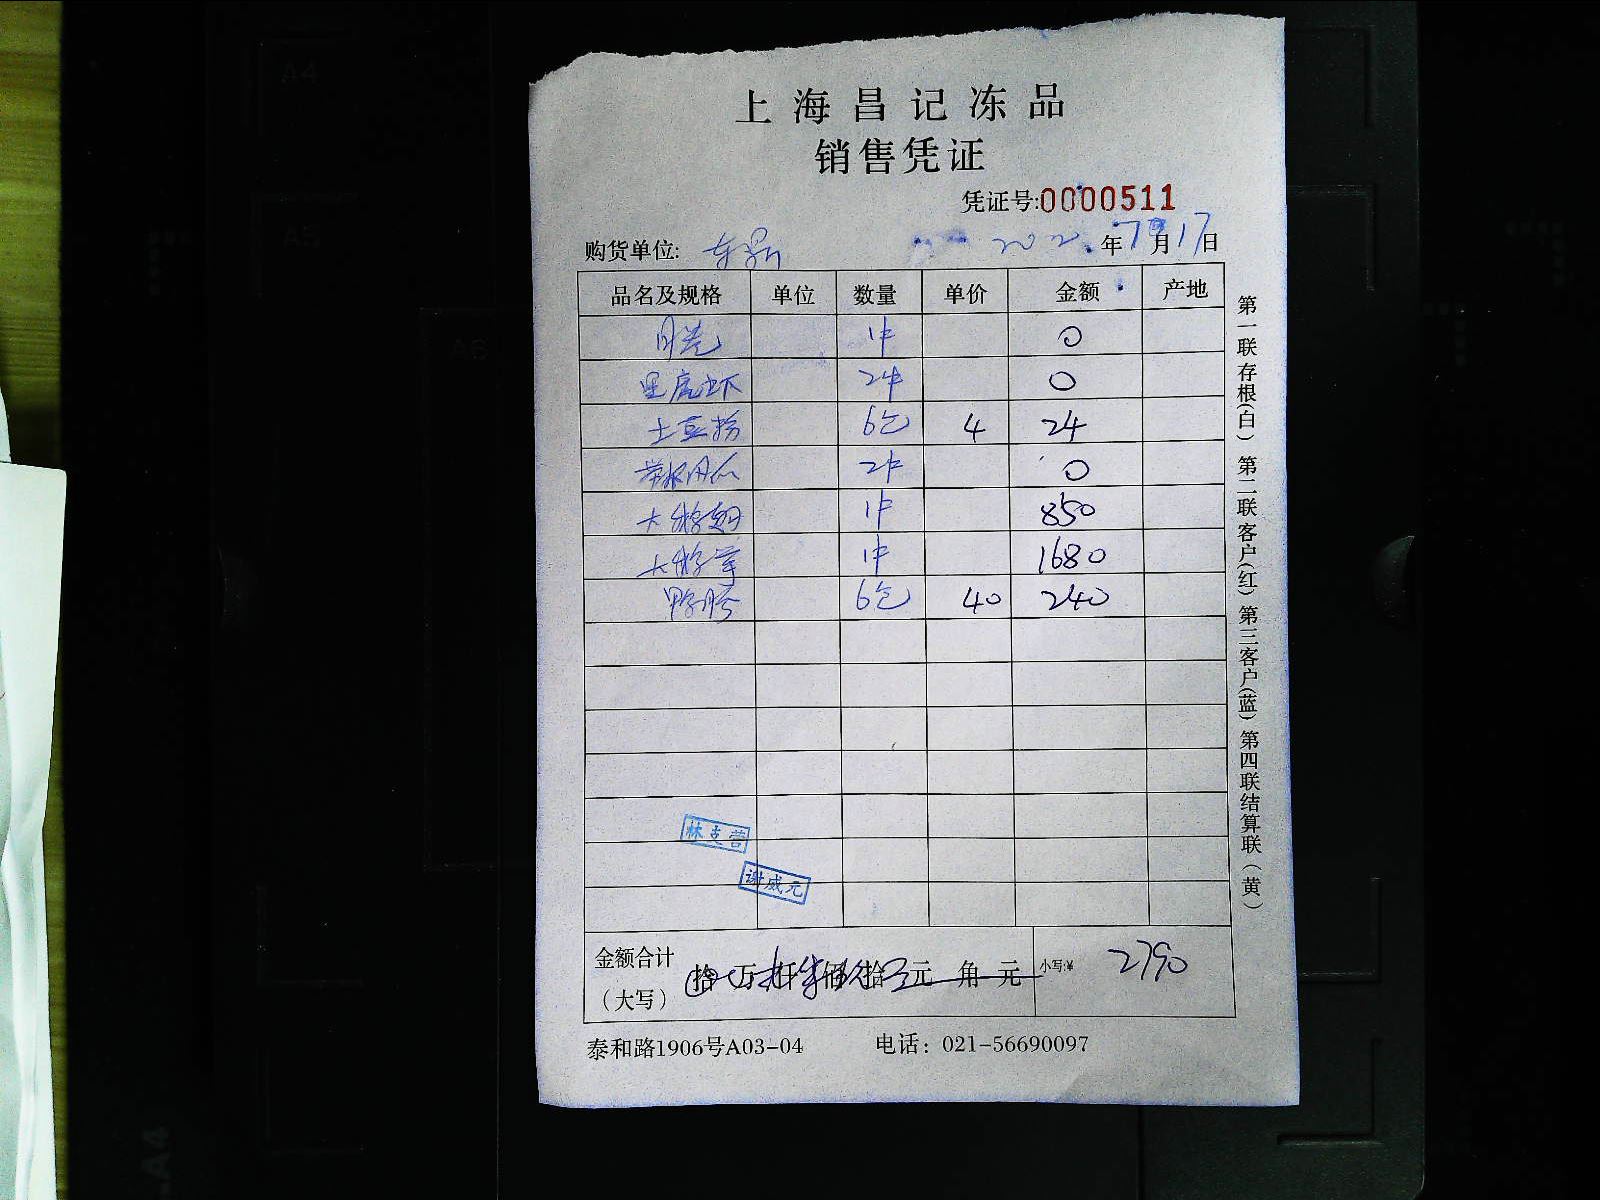 A4
A5
A6
上海昌记冻品
销售凭证
凭证号:0000511
购货单位: 202 年 7 月 17 日
品名及规格 单位 数量 单价 金额 产地
1件 0
2件 0
土豆粉 6包 4 24
2件 0
1件 850
1件 1680
鸭胗 6包 40 240
林克营
谢威元
金额合计
(大写) 拾 万 仟 佰 拾 元 角 元 小写:¥ 2790
泰和路1906号A03-04 电话：021-56690097
第一联存根(白) 第二联客户(红) 第三客户(蓝) 第四联结算联(黄)
A4